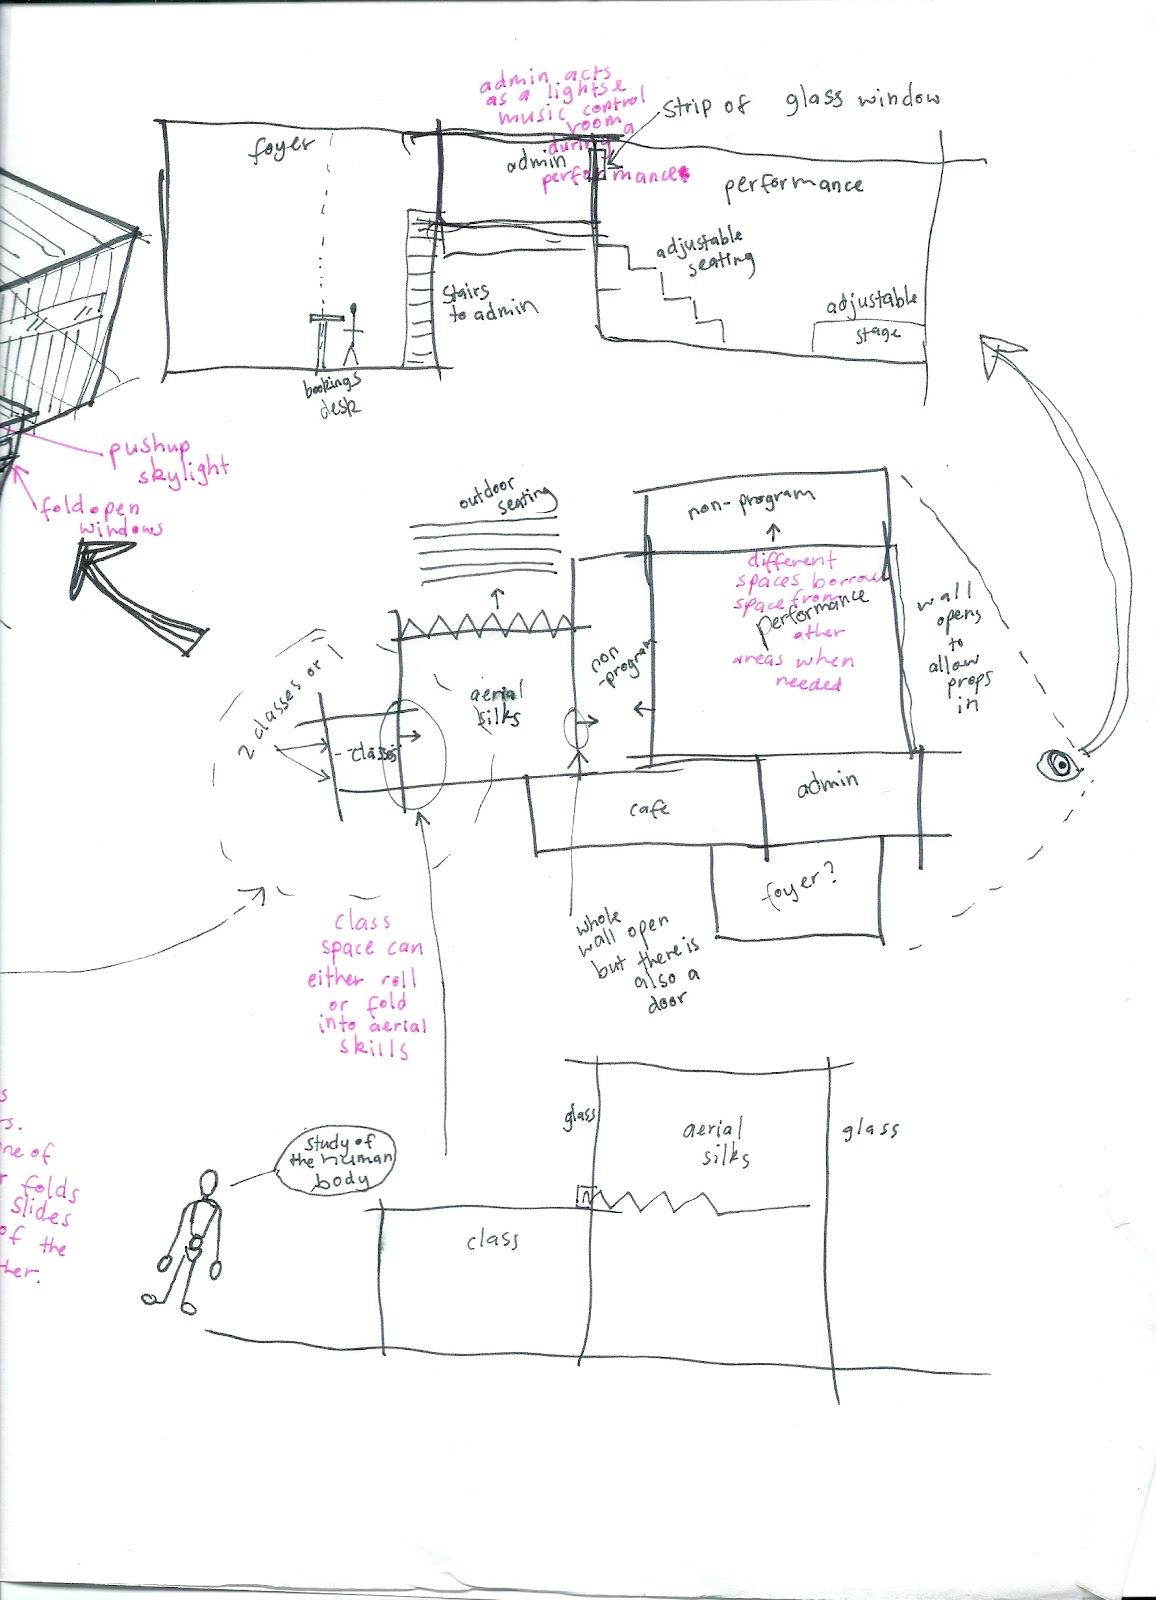 admin acts
as a lights &
music control
room
during a
performance
strip of glass window
foyer
admin
performance
adjustable
seating
stairs
to admin
adjustable
stage
bookings
desk
pushup
skylight
fold open
windows
outdoor
seating
non-program
different
spaces borrow
space from
other
areas when
needed
performance
wall
opens
to
allow
props
in
non
-program
2 classes or 1
aerial
silks
classes
cafe
admin
foyer?
class
space can
either roll
or fold
into aerial
skills
whole
wall open
but there is
also a
door
s
rs.
one of
r folds
slides
of the
ther.
study of
the human
body
glass
aerial
silks
glass
class